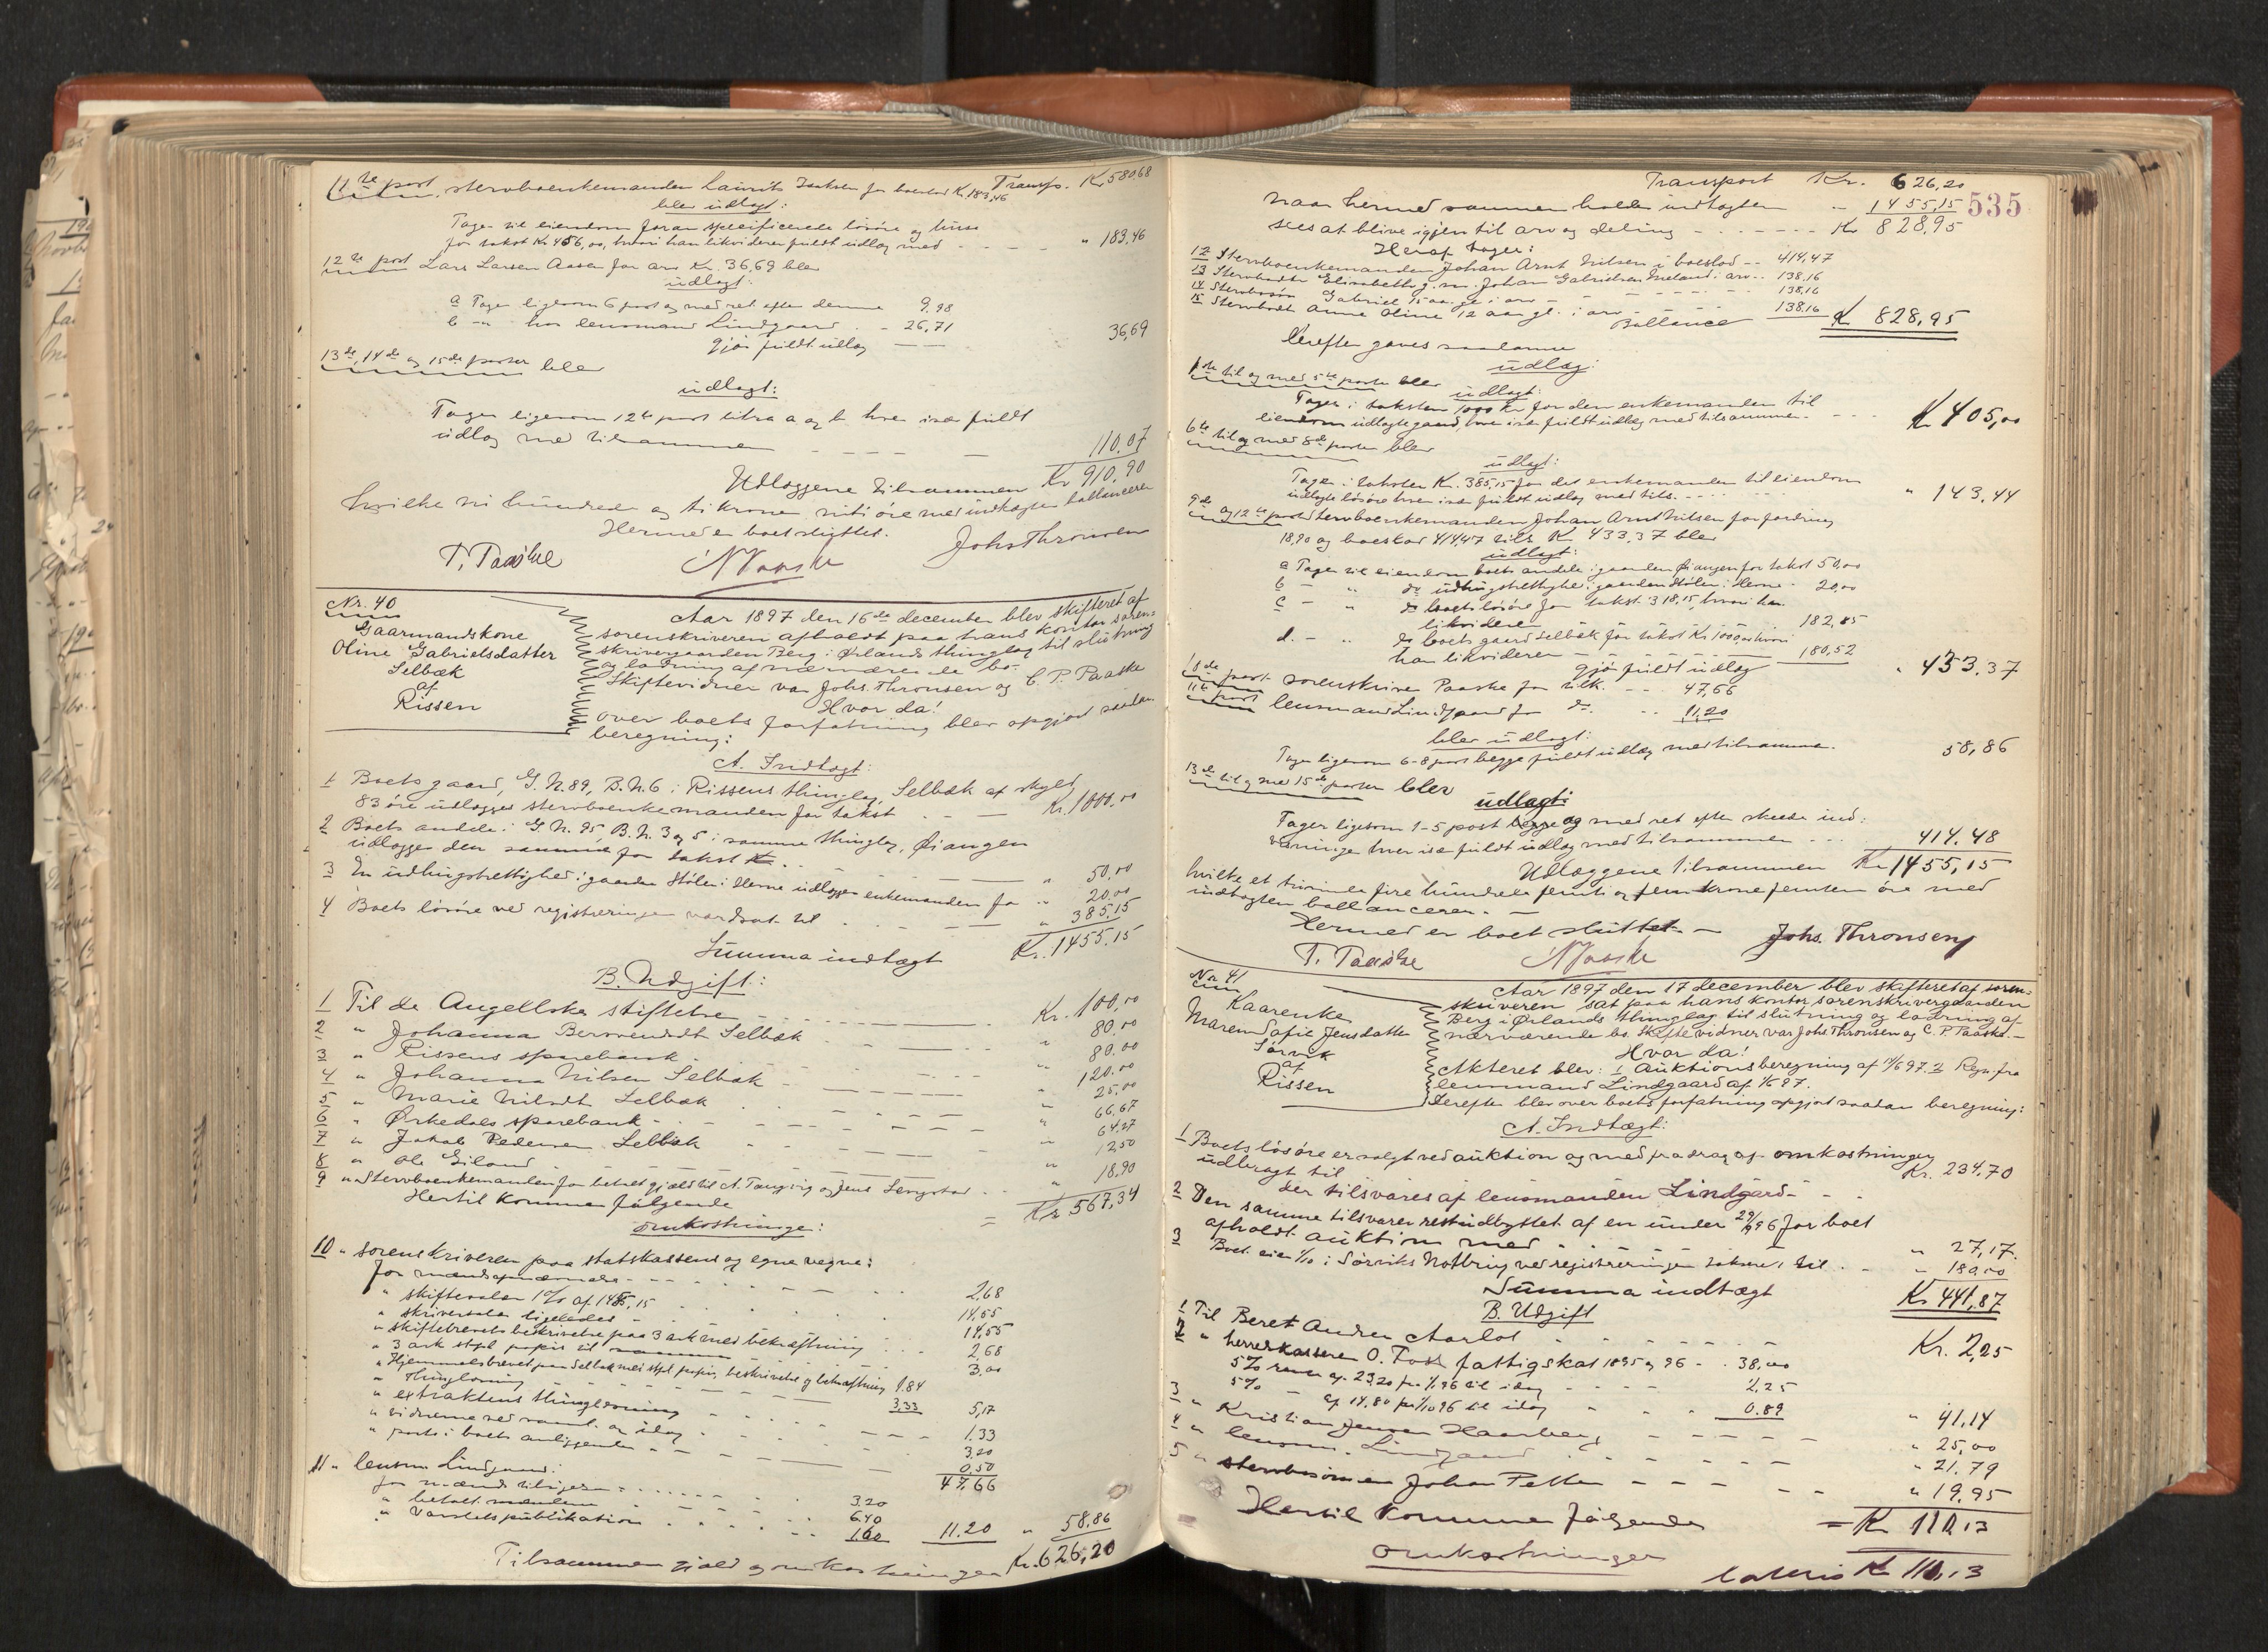 11te post stervboenkemanden Laurits Isaksen for boeslod Kr. 183,46 Transp. Kr. 580 68
blev udlagt:
Tager til eiendom foran specificerede løsøre og huse
for takst Kr. 456,00, hvori han likviderer fuldt udlæg med - - - " 183,46
12te post Lars Larsen Aasen for arv Kr. 36,69 blev
udlagt:
a Tager ligesom 6 post og med ret efter denne 9,98
b - " - hos lensmand Lindgaard - - 26,71
gjør fuldt udlæg - - 36,69
13de, 14de og 15de poster blev
udlagt:
Tager ligesom 12te post litra a og b hver især fuldt
udlæg med tilsammen - - - - 110.07
Udlæggene tilsammen Kr 910,90
hvilke ni hundrede og ti kroner niti øre med indtægten ballancerer
Hermed er boet sluttet.
T. Paaske
N Paaske
Johs Thronsen
Nr. 40
Gaarmandskone
Oline Gabrielsdatter
Selbæk
af
Rissen
Aar 1897 den 16de december blev skifteret af
sorenskriveren afholdt paa hans kontor soren-
skrivergaarden Berg i Ørlands thinglag til slutning
og ladning af nærværende bo.
Skiftevidner var Johs. Thronsen og C. P. Paaske
Hvor da!
over boets forfatning blev opgjort saadan
beregning:
A. Indtægt:
1 Boets gaard, G. N. 89, B. N. 6 i Rissens thinglag, Selbæk af skyld
83 øre udlægges stervboenkemanden for takst - - Kr. 1000,00
2 Boets andele i G. N. 95 B. N. 3 og 5 i samme thinglag, Øiangen
udlægges den samme for takst Kr. - - " 50,00
3 En udhugstrettighed i gaarden Stølen i Herne udlægges enkemanden for " 20,00
4 Boets løsøre ved registreringen vurderet til - - " 385.15
Summa indtægt Kr. 1455.15
B. Udgift:
1 Til de Angellske stiftelser - - Kr. 100,00
2 " Johanna Selbæk - - " 80,00
3 " Rissens sparebank - - " 80.00
4 " Johanna Nilsen Selbæk - - " 120.00
5 " Marie Nilsdt. Selbæk - - " 25,00
6 " Ørkedals sparebank - - " 66,67
7 " Jakob Pedersen Selbæk - - " 64,27
8 " Ole Eiland - - " 12,50
9 " stervboenkemanden for betalt gjæld til A. Tangvig og Jens - - " 18,90
Hertil kommer følgende = Kr 567,34
omkostninger:
10 " sorenskriveren paa statskassens og egne vegne:
for mændsopnævnelse - - 2,68
" skiftesalær 1% af 1455,15 - - 14,55
" skriversalær ligeledes - - 14,55
" skiftebrevets beskrivelse paa 3 ark med bekræftning - - 2,68
" 3 ark stpl papir til - - 3,00
" Hjemmelsbrevet paa Selbæk med stpl. papir, beskrivelse og bekræftning 1.84
" Thinglæsning - - 3,33 5,17
" extraktens thinglæsning - - 1.33
" vidnerne ved saml. og idag - - 3,20
" porto i boets anliggender - - 0,50
47,66
11 " lensm. Lindgaard:
for mænds tilsigelse - - 3.20
" betalt mændene - - 6.40
" varselspublikation - - 1.60 11.20 " 58.86
Tilsammen gjæld og omkostninger Kr. 626,20
Transport Kr. 626,20
535
naar hermed sammenholdes indtægten - 1455,15
sees at blive igjen til arv og deling - - - Kr 828,95
Heraf tager:
12 Stervboenkemanden Johan Arnt Nilsen i boeslod - - 414,47
13 Stervbodt. Elisabeth g. m. Johan Gabrielsen i arv - - 138,16
14 Stervbosøn Gabriel 15 aar gl. i arv - - 138,16
15 Stervbodt. Anna Oline 12 aar gl. i arv - - 138,16
Ballance Kr 828,95
derefter gaves saadanne
udlæg:
1ste til og med 5te poster blev udlagt:
Tager i taksten 1000 Kr for den enkemanden til
eiendom udlagte gaard, hver især fuldt udlæg med tilsammen - - Kr 405,00
6te til og med 8de poster blev
udlagt:
Tager i taksten Kr. 385,15 for det enkemanden til eiendom
udlagte løsøre hver især fuldt udlæg med tils. - - " 143,44
9de og 12te post stervboenkemanden Johan Arnt Nilsen for fordring
18,90 og boeslod 414,47 tils. Kr 433.37 blev
udlagt:
a Tager til eiendom boets andele i gaarden Øiangen for takst 50,00
b - " do udhugstrettighed i gaarden Stølen i Herne - 20,00
c - " do boets løsøre for takst 318,15, hvori han
likviderer - - 182,85
d. - " do boets gaard Selbæk for takst Kr 1000,00 hvori
han likviderer - - 180,52
gjør fuldt udlæg " 433.37
10de post sorenskriver Paaske for tilk. - - 47,66
11te post lensmand Lindgaard for do. - - 11,20
blev udlagt:
Tager ligesom 6-8 post begge fuldt udlæg med tilsammen - 58,86
13de til og med 15de poster blev
udlagt:
Tager ligesom 1-5 post begge og med ret efter skeede ind-
visninger hver især fuldt udlæg med tilsammen - - 414.48
Udlæggene tilsammen Kr 1455,15
hvilke et tusinde fire hundrede femti og fem kroner femten øre med
indtægten ballancerer. -
Hermed er boet sluttet. -
T. Paaske
N Paaske
Johs. Thronsen
Nr. 41
Kaarenke
Maren Sofie Jensdatter
Sørvik
af
Rissen
Aar 1897 den 17 december blev skifteret af soren-
skriveren sat paa hans kontor sorenskrivergaarden
Berg i Ørlands thinglag til slutning og ladning af
nærværende bo. Skiftevidner var Johs Thronsen og C. P. Paaske. -
Hvor da!
Akteret blev: 1 Auktionsberegning af 97. 2 Regn. fra
lensmand Lindgaard af 97.
Derefter blev over boets forfatning opgjort saadan beregning:
A. Indtægt:
1 Boets løsøre er solgt ved auktion og med fradrag af omkostninger
udbragt til - - Kr. 234,70
der tilsvares af lensmanden Lindgard -
2 Den samme tilsvarer restudbyttet af en under 29/ 96 for boet
afholdt auktion med - - " 27,17.
3 Boet eier 1/10 i Sørviks Notbrug ved registreringen takseret til - - " 180,00
Summa indtægt Kr 441,87
B. Udgift
1 Til Beret Andrea Aarlot - - Kr. 2,25
2 " herredskasserer O. Fosk fattigskat 1895 og 96 - - 38,00
5% rente af 23,20 fra 96 til idag - - 2,25
5% - af 14,80 fra 1/10 96 til idag - - 0.89 " 41,14
3 " Kristian Jensen Haarberg - - " 25,00
4 " lensm. Lindgaard - - " 21.79
5 " stervbosønnen Johan Petter - - " 19,95
Hertil kommer følgende = Kr 110,13
omkostninger
lateris Kr 110,13